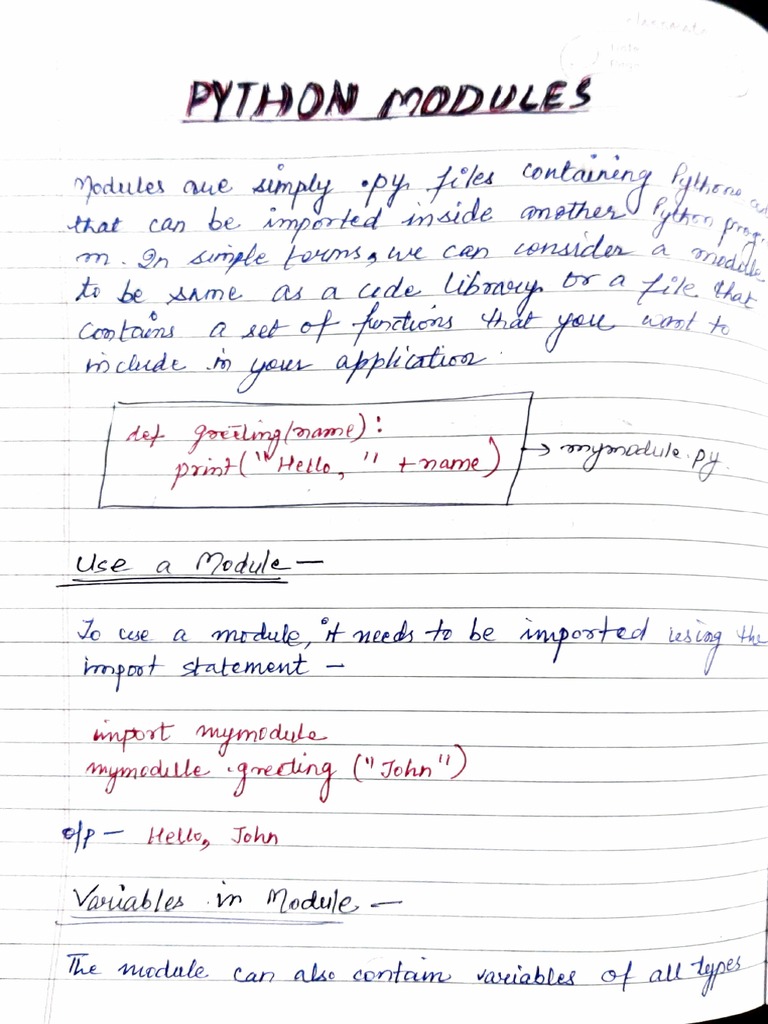 PYTHON MODULES
Modules are simply .py files containing Python
that can be imported inside another Python progra
m. In simple terms, we can consider a module
to be same as a code library or a file that
contains a set of functions that you want to
include in your application.
def greeting(name):
print("Hello, " + name)
→ mymodule.py
Use a Module —
To use a module, it needs to be imported using the
import statement —
import mymodule
mymodule.greeting ("John")
o/p — Hello, John
Variables in Module —
The module can also contain variables of all types